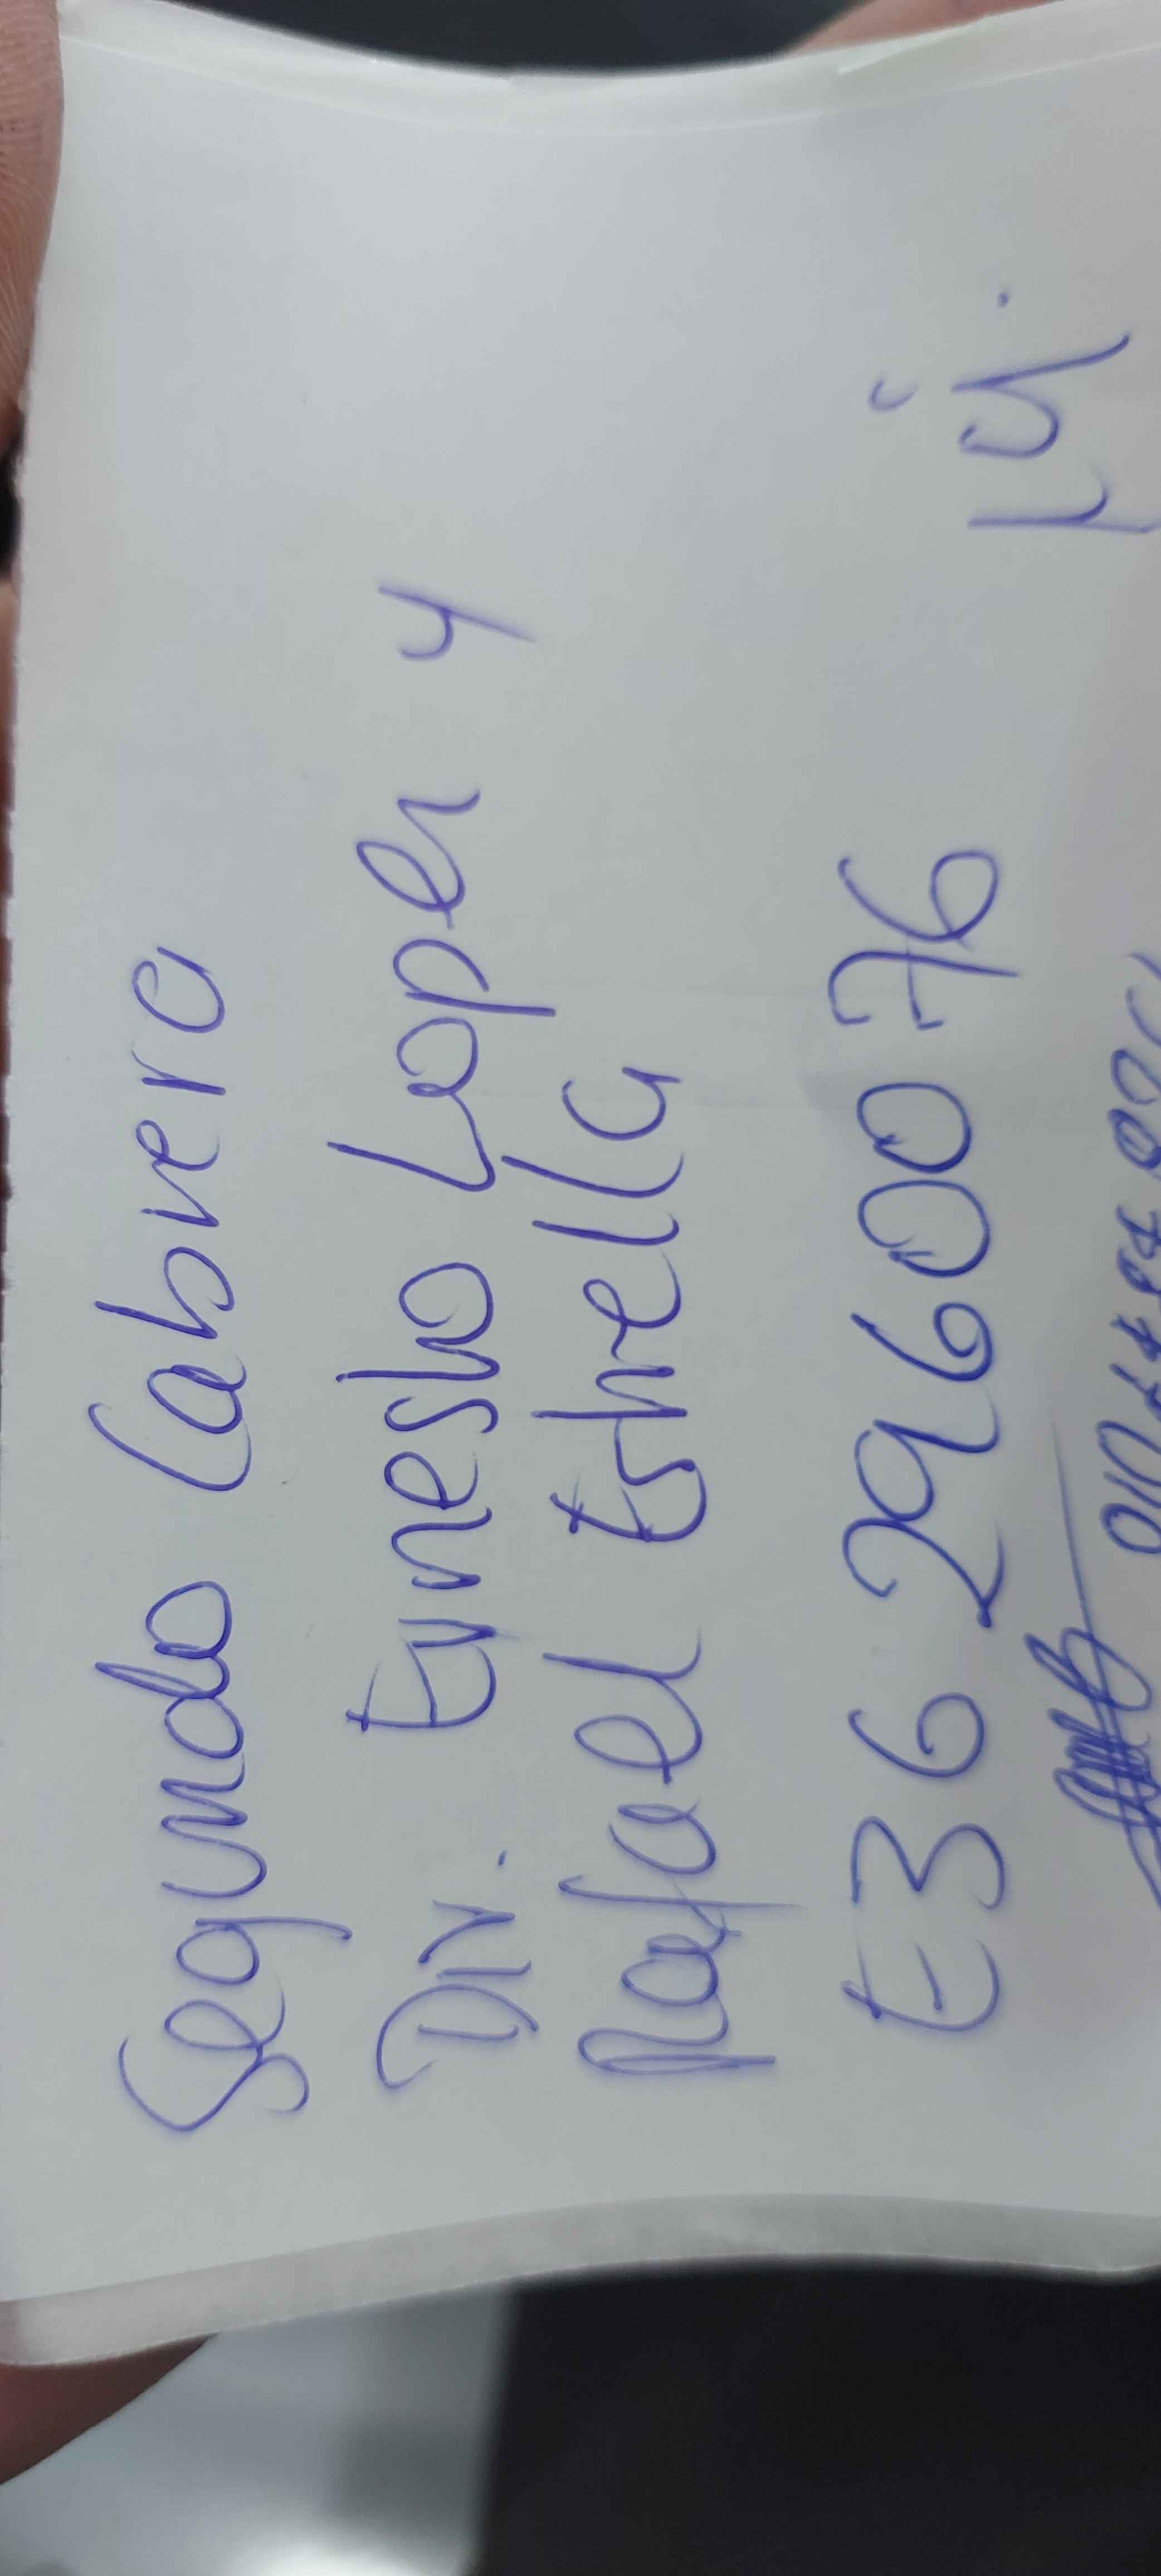 Segundo Cabrera
Dir. Ernesto Loper y
Rafael Estrella
E36 296 0076